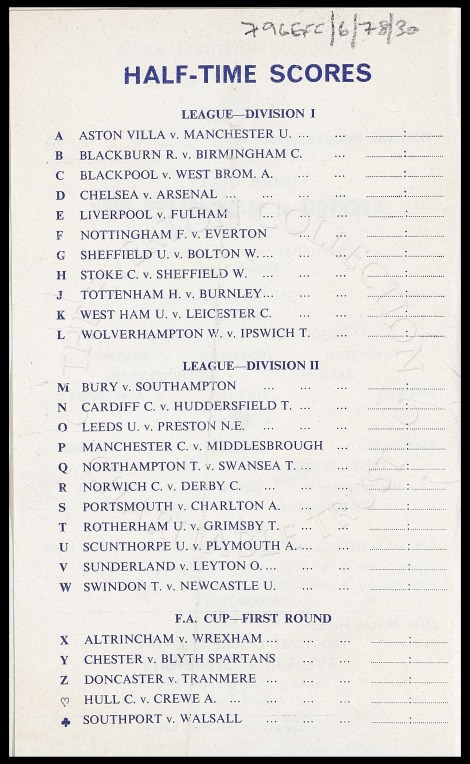 796EFC/6/78/30
HALF-TIME SCORES
LEAGUE—DIVISION I
A ASTON VILLA v. MANCHESTER U. ... ... ............:............
B BLACKBURN R. v. BIRMINGHAM C. ... ............:............
C BLACKPOOL v. WEST BROM. A. ... ... ............:............
D CHELSEA v. ARSENAL ... ... ... ............:............
E LIVERPOOL v. FULHAM ... ... ............:............
F NOTTINGHAM F. v. EVERTON ... ... ............:............
G SHEFFIELD U. v. BOLTON W. ... ... ... ............:............
H STOKE C. v. SHEFFIELD W. ... ... ... ............:............
J TOTTENHAM H. v. BURNLEY... ... ... ............:............
K WEST HAM U. v. LEICESTER C. ... ... ............:............
L WOLVERHAMPTON W. v. IPSWICH T. ... ............:............
LEAGUE—DIVISION II
M BURY v. SOUTHAMPTON ... ... ... ............:............
N CARDIFF C. v. HUDDERSFIELD T. ... ... ............:............
O LEEDS U. v. PRESTON N.E. ... ... ... ............:............
P MANCHESTER C. v. MIDDLESBROUGH ... ............:............
Q NORTHAMPTON T. v. SWANSEA T. ... ... ............:............
R NORWICH C. v. DERBY C. ... ... ... ............:............
S PORTSMOUTH v. CHARLTON A. ... ... ............:............
T ROTHERHAM U. v. GRIMSBY T. ... ... ............:............
U SCUNTHORPE U. v. PLYMOUTH A. ... ... ............:............
V SUNDERLAND v. LEYTON O. ... ... ... ............:............
W SWINDON T. v. NEWCASTLE U. ... ... ............:............
F.A. CUP—FIRST ROUND
X ALTRINCHAM v. WREXHAM ... ... ... ............:............
Y CHESTER v. BLYTH SPARTANS ... ... ............:............
Z DONCASTER v. TRANMERE ... ... ... ............:............
♡ HULL C. v. CREWE A. ... ... ... ... ............:............
♣ SOUTHPORT v. WALSALL ... ... ... ............:............